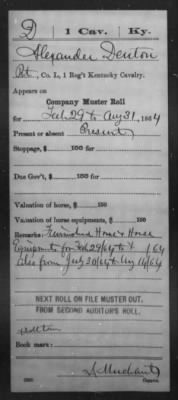 D 1 Cav. Ky.
Alexander Denton
Pvt., Co. I, 1 Reg't Kentucky Cavalry.
Appears on
Company Muster Roll
for Feb. 29 to Aug 31, 1864
Present or absent Present
Stoppage, $ 100 for
Due Gov't, $ 100 for
Valuation of horse, $ 100
Valuation of horse equipments, $ 100
Remarks: Furnished Horse & Horse
Equipmts for Feb 29/64 to
from July 30/64 to Aug 14/64
NEXT ROLL ON FILE MUSTER OUT.
FROM SECOND AUDITOR'S ROLL.
Book mark:
Copyist.